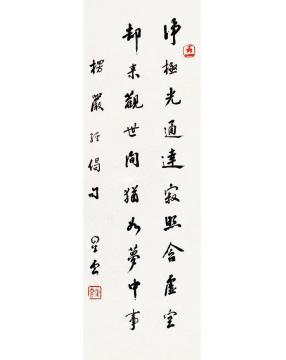 淨極光通達寂照含虛空
却來觀世間猶如夢中事
楞嚴經偈句
星雲